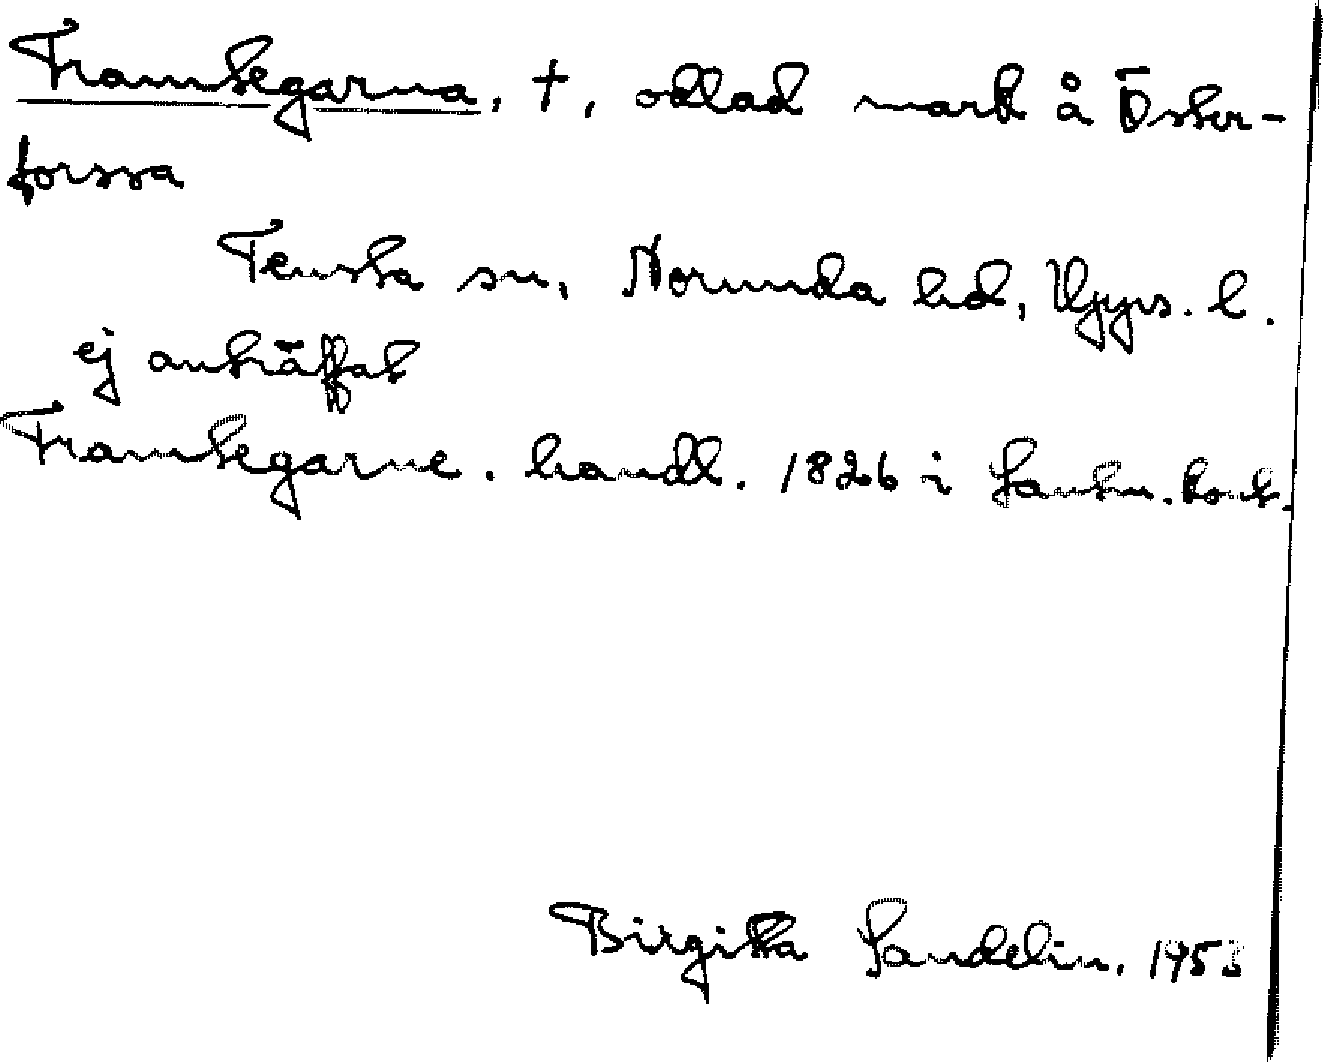 Framtegarna, †, odlad mark å Öster-
forssa
Tensta sn, Norunda hd, Upps. l.
ej anträffat
Framtegarne. handl. 1826 i Lantm. kont.
Birgitta Sandelin. 1953